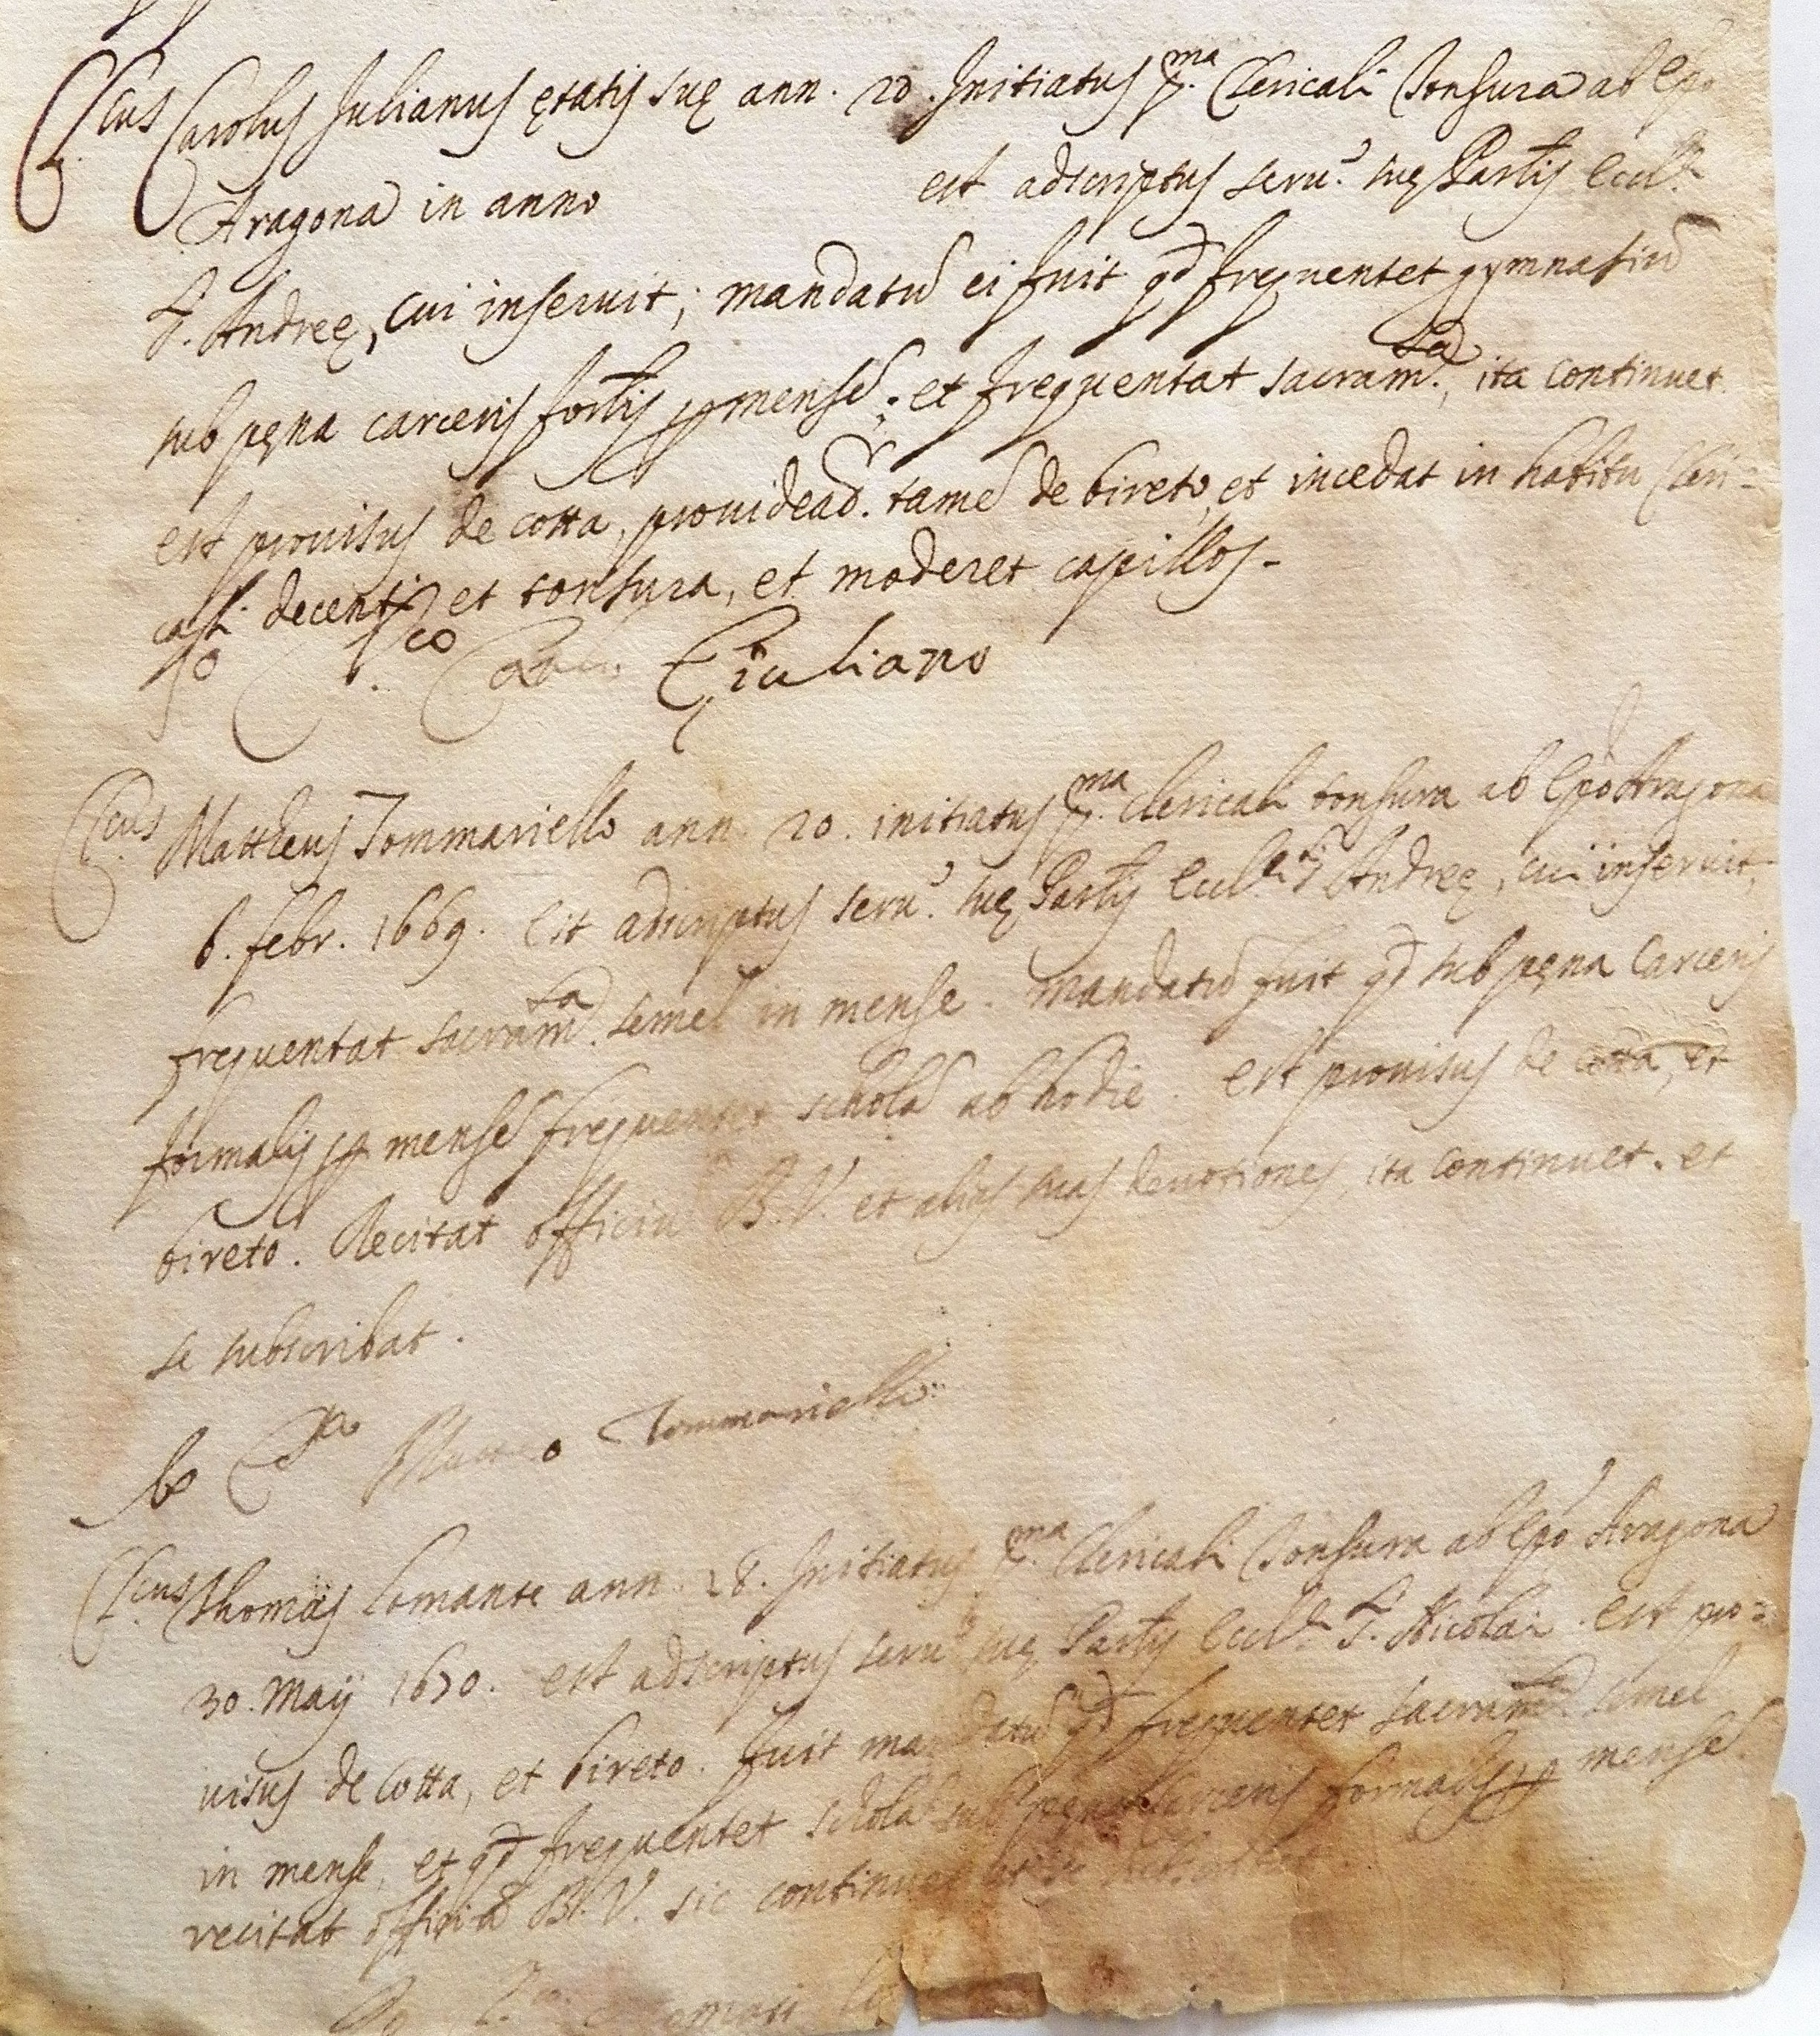 Cl.cus Carolus Julianus ętatis suę ann. 20. Initiatus p.ma Clericali Tonsura ab Ep̃o
Aragona in anno est adscriptus seru.° suę Part.is Eccl.ę
S. Andreę, cui inseruit; mandatũ ei fuit qd̃ frequentet gymnasiũ
sub pęna carceris fortis p mensẽ; et frequentat sacram.ta, ita continuet
est prouisus de cotta, prouideat. tamẽ de bireto, et incedat in habitu Cleri=
cali decenti, et tonsura, et moderet capillos.
Io Cl.co Carlo Giuliano
Cl.cus Mattheus Tommariello ann. 20. initiatus p.ma clericali tonsura ab Ep̃o Aragona
6. febr. 1669. Est adscriptus seru.° suę Part.is Eccl.ę S. Andreę, cui inseruit,
frequentat sacram.ta semel in mense. Mandatũ fuit qd̃ sub pęna Carceris
formalis p mensẽ frequentet scholã ab hodie. Est prouisus de cotta, et
bireto. Recitat officiũ B. V. et alias suas deuotiones, ita continuet. et
se subscribat.
Io Cl.co Matteo Tommariello
Cl.cus Thomas Lomante ann. 28. Initiatus p.ma Clericali Tonsura ab Ep̃o Aragona
30. Maÿ 1670. est adscriptus seru.° suę Part.is Eccl.ę S. Nicolai. est pro=
uisus de Cotta, et bireto. fuit mandatũ qd̃ frequentet sacram.ta semel
in mense, et qd̃ frequentet scholã sub pęna Carceris formalis p mensẽ.
recitat officiũ B. V. sic continuet et se subscribat